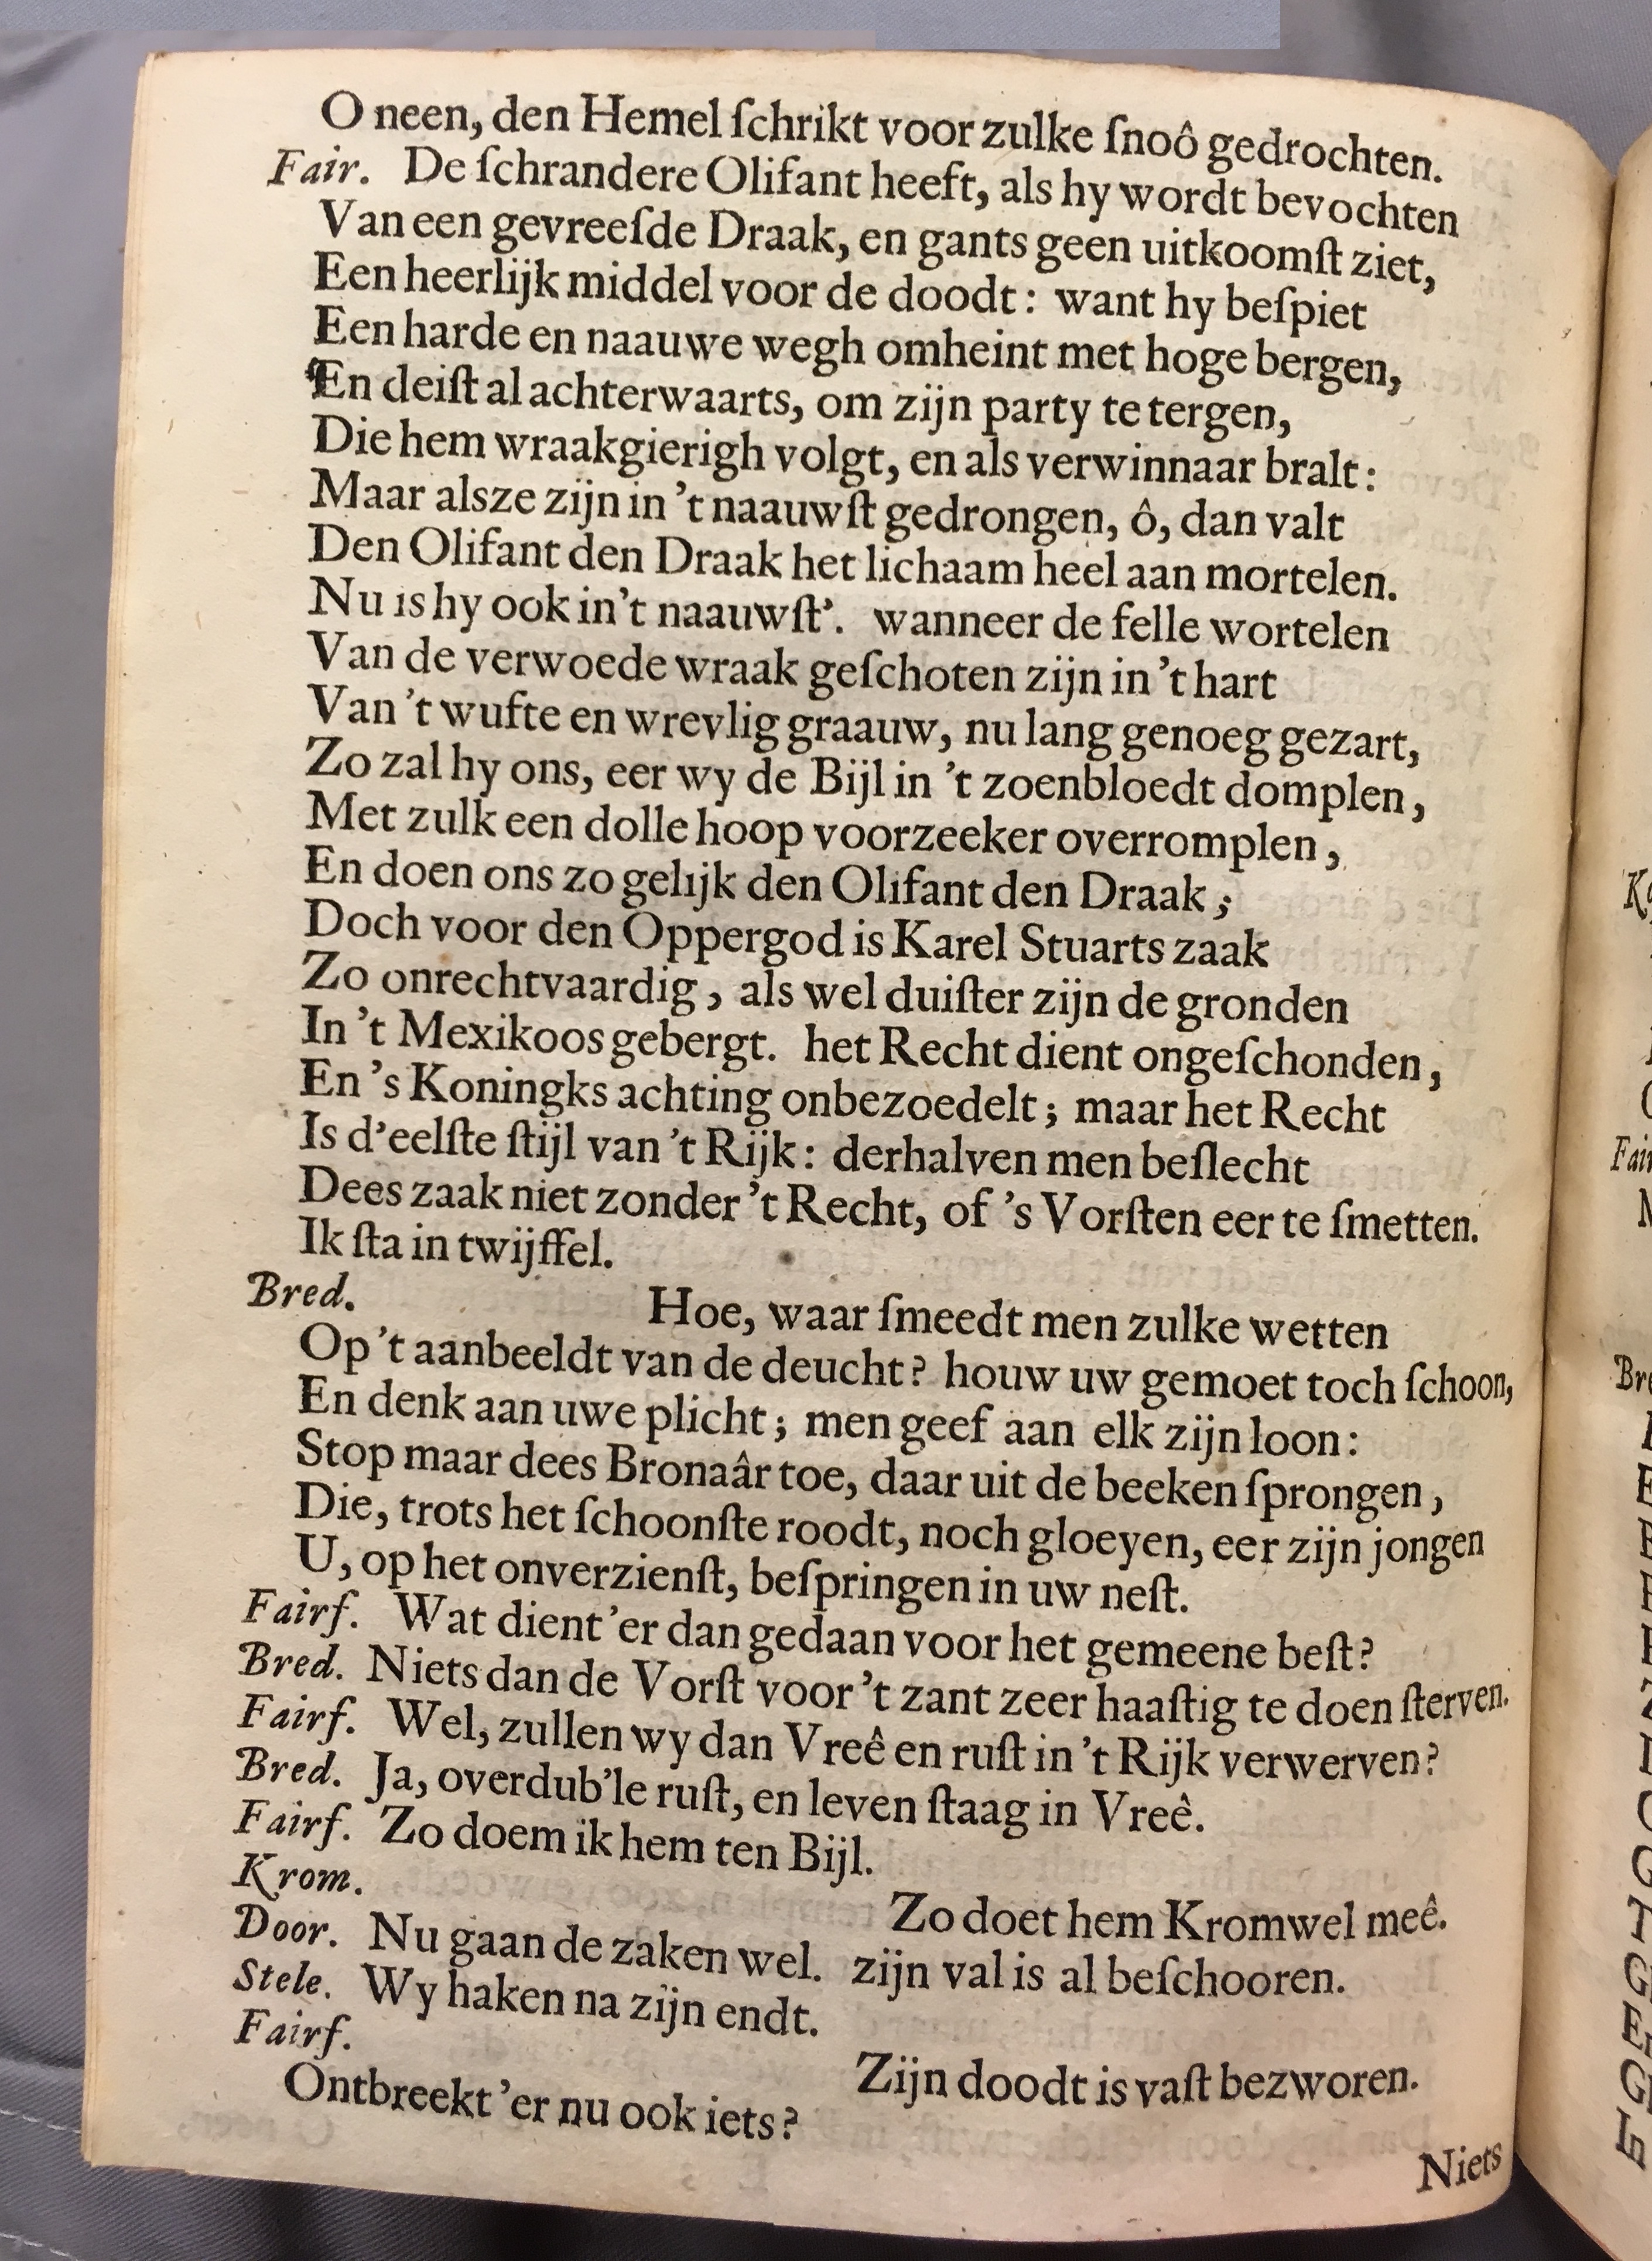 O neen, den Hemel ſchrikt voor zulke ſnoô gedrochten.
Fair. De ſchrandere Olifant heeft, als hy wordt bevochten
Van een gevreeſde Draak, en gants geen uitkoomſt ziet,
Een heerlijk middel voor de doodt: want hy beſpiet
Een harde en naauwe wegh omheint met hoge bergen,
En deiſt al achterwaarts, om zijn party te tergen,
Die hem wraakgierigh volgt, en als verwinnaar bralt:
Maar alsze zijn in 't naauwſt gedrongen, ô, dan valt
Den Olifant den Draak het lichaam heel aan mortelen.
Nu is hy ook in't naauwſt'. wanneer de felle wortelen
Van de verwoede wraak geſchoten zijn in 't hart
Van 't wufte en wrevlig graauw, nu lang genoeg gezart,
Zo zal hy ons, eer wy de Bijl in 't zoenbloedt domplen,
Met zulk een dolle hoop voorzeeker overromplen,
En doen ons zo gelijk den Olifant den Draak;
Doch voor den Oppergod is Karel Stuarts zaak
Zo onrechtvaardig, als wel duiſter zijn de gronden
In 't Mexikoos gebergt. het Recht dient ongeſchonden,
En 's Koningks achting onbezoedelt; maar het Recht
Is d'eelſte ſtijl van 't Rijk: derhalven men beſlecht
Dees zaak niet zonder 't Recht, of 's Vorſten eer te ſmetten.
Ik ſta in twijffel.
Bred. Hoe, waar ſmeedt men zulke wetten
Op 't aanbeeldt van de deucht? houw uw gemoet toch ſchoon,
En denk aan uwe plicht; men geef aan elk zijn loon:
Stop maar dees Bronaâr toe, daar uit de beeken ſprongen,
Die, trots het ſchoonſte roodt, noch gloeyen, eer zijn jongen
U, op het onverzienſt, beſpringen in uw neſt.
Fairf. Wat dient 'er dan gedaan voor het gemeene beſt?
Bred. Niets dan de Vorſt voor 't zant zeer haaſtig te doen ſterven.
Fairf. Wel, zullen wy dan Vreê en ruſt in 't Rijk verwerven?
Bred. Ja, overdub'le ruſt, en leven ſtaag in Vreê.
Fairf. Zo doem ik hem ten Bijl.
Krom. Zo doet hem Kromwel meê.
Door. Nu gaan de zaken wel. zijn val is al beſchooren.
Stele. Wy haken na zijn endt.
Fairf. Zijn doodt is vaſt bezworen.
Ontbreekt 'er nu ook iets?
Niets